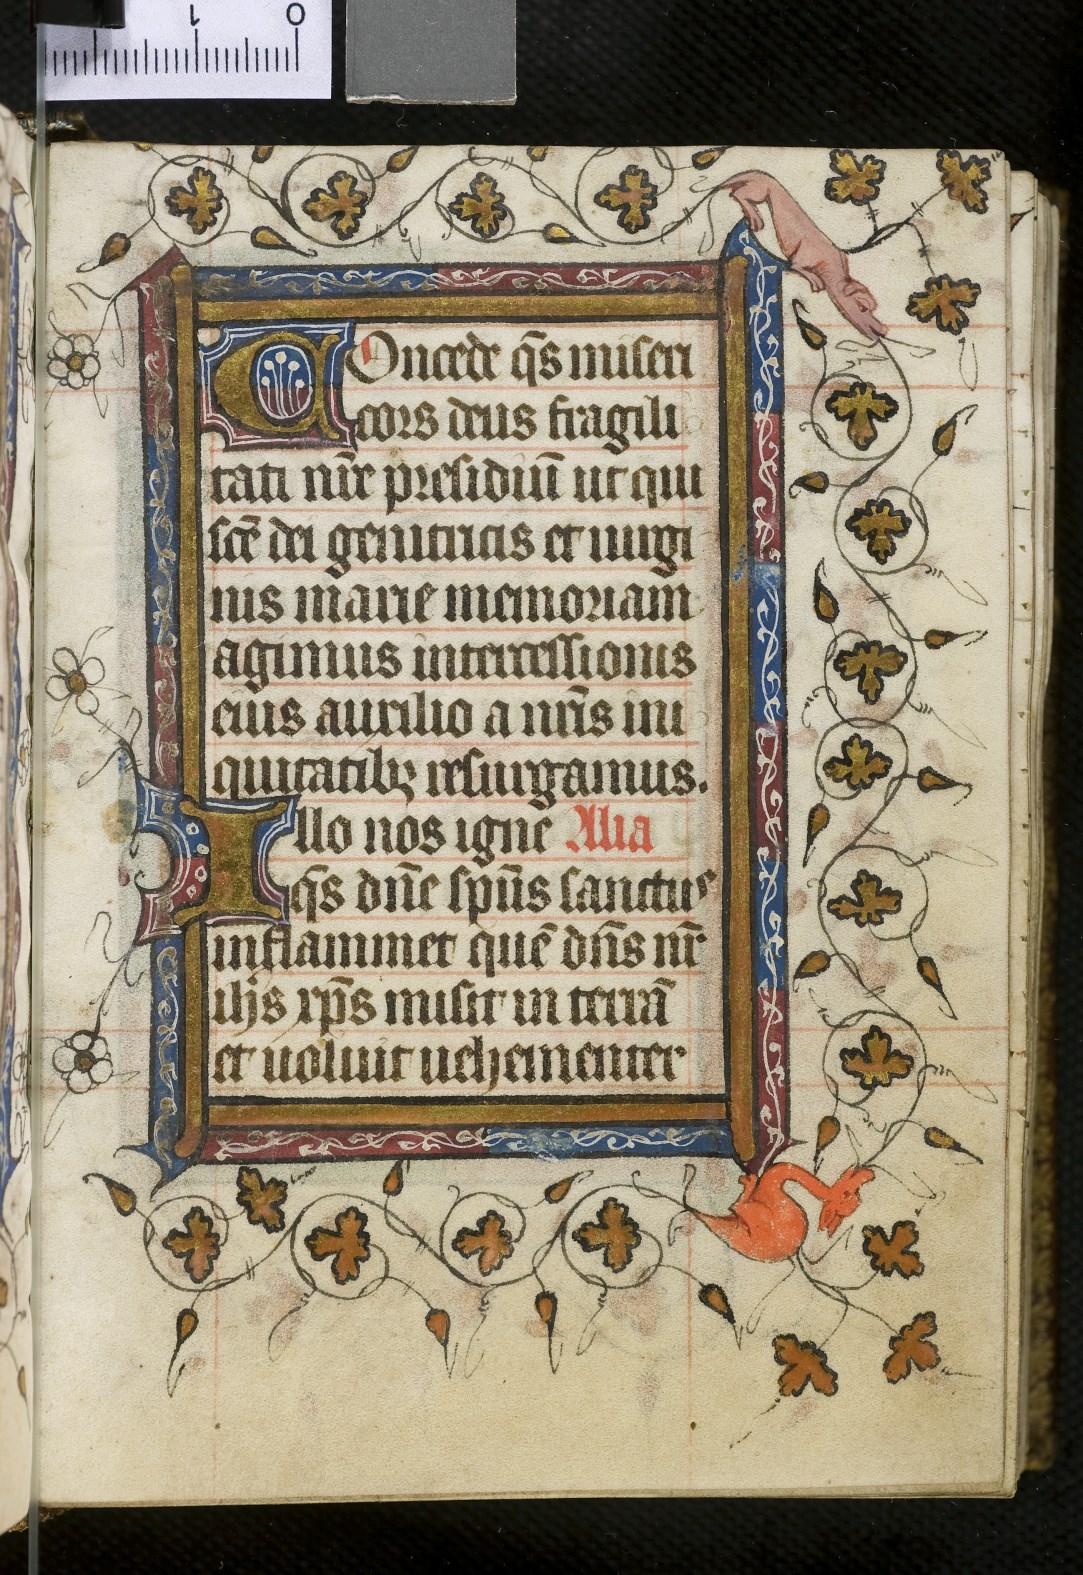 1 0
Concede q̄s miseri
cors deus fragili
tati nr̄e presidiū ut qui
scē dei genitricis et uirgi
nis marie memoriam
agimus intercessionis
eius auxilio a nr̄is ini
quitatibꝫ resurgamus.
Illo nos igne Alia
q̄s dn̄e spūs sanctus
inflammet quē dn̄s nr̄
ih̄s xp̄s misit in terrā
et uoluit uehementer